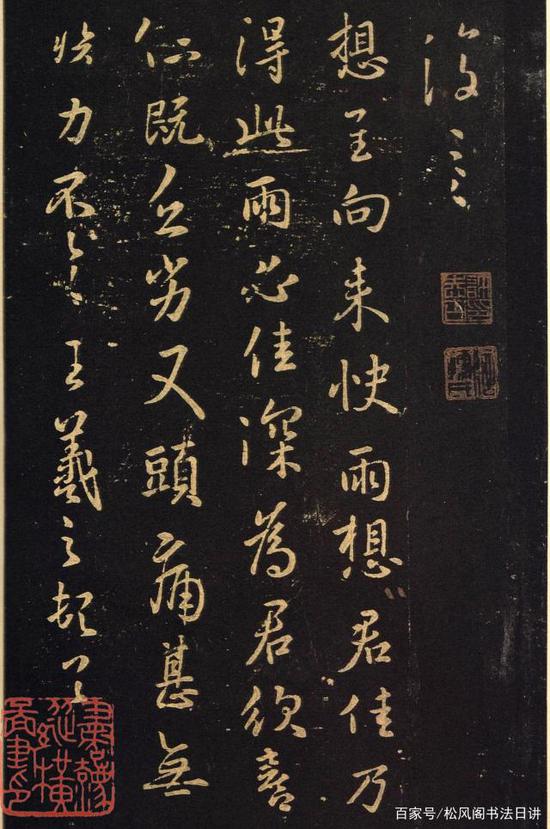 想至向来快雨想君佳乃
得此雨亦佳深為君欣喜
仆既乏劣又頭痛甚無
力不 王羲之頓首
百家号/松风阁书法日讲